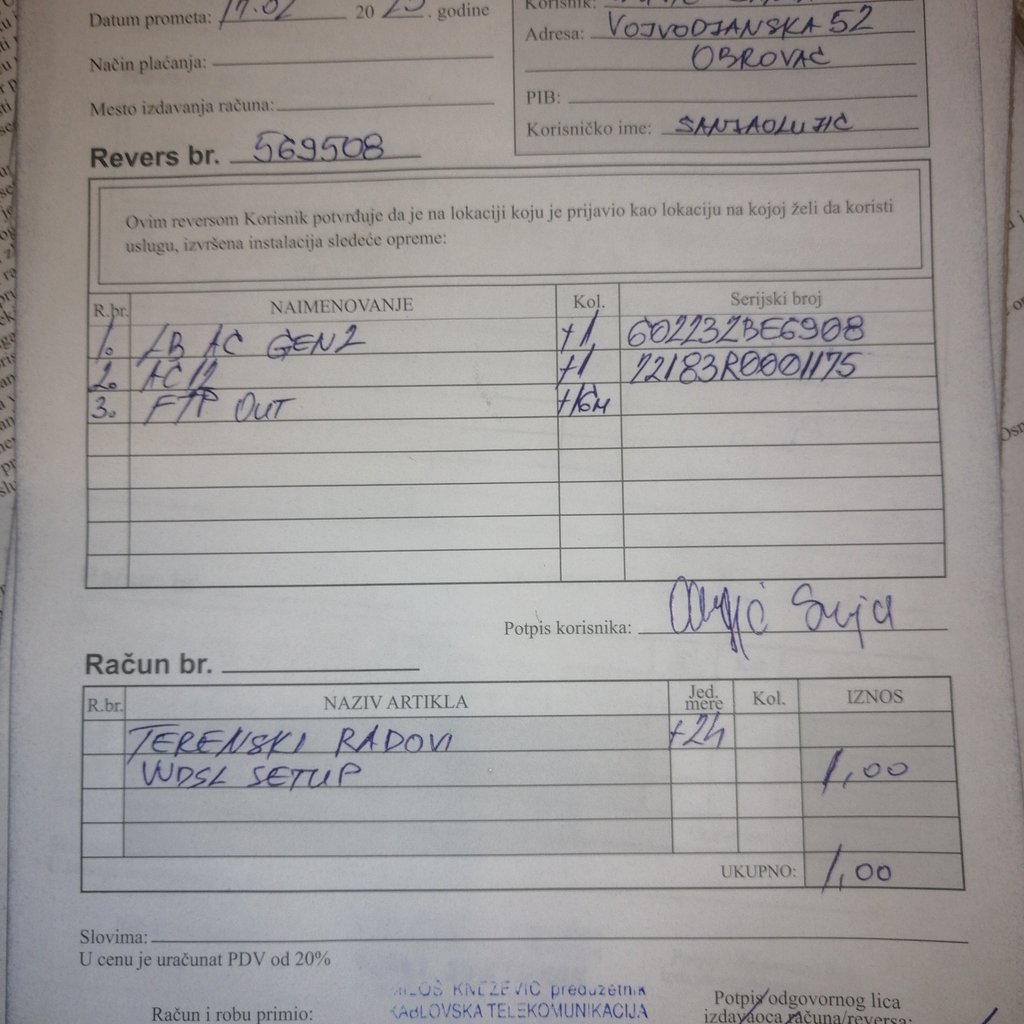 Datum prometa: 17.02 20 23. godine
Korisnik:
Adresa: VOJVOĐANSKA 52
OBROVAC
Način plaćanja:
PIB:
Mesto izdavanja računa:
Korisničko ime: SANJAOLUJIC
Revers br. 569508
Ovim reversom Korisnik potvrđuje da je na lokaciji koju je prijavio kao lokaciju na kojoj želi da koristi
uslugu, izvršena instalacija sledeće opreme:
R.br. NAIMENOVANJE Kol. Serijski broj
1. LB AC GEN2 +1 60223ZBE6908
2. AC12 +1 22183R0001175
3. FTP OUT +16M
Potpis korisnika:
Račun br.
R.br. NAZIV ARTIKLA Jed. mere Kol. IZNOS
TERENSKI RADOVI +2h
WDSL SETUP 1,00
UKUPNO: 1,00
Slovima:
U cenu je uračunat PDV od 20%
MILOŠ KNEŽEVIĆ preduzetnik
KABLOVSKA TELEKOMUNIKACIJA
Račun i robu primio:
Potpis odgovornog lica
izdavaoca računa/reversa: